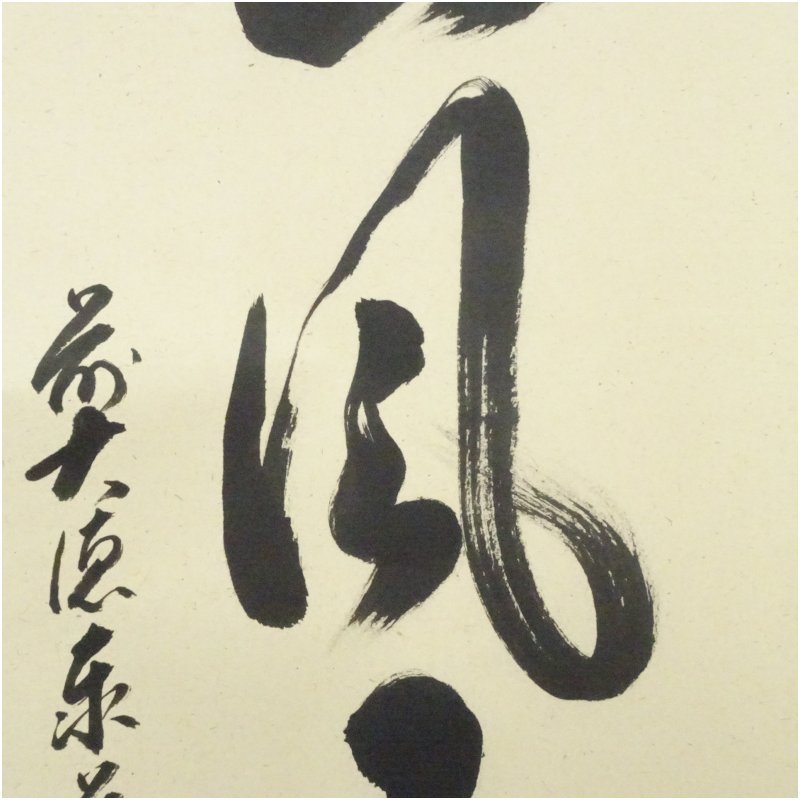 風
前大徳